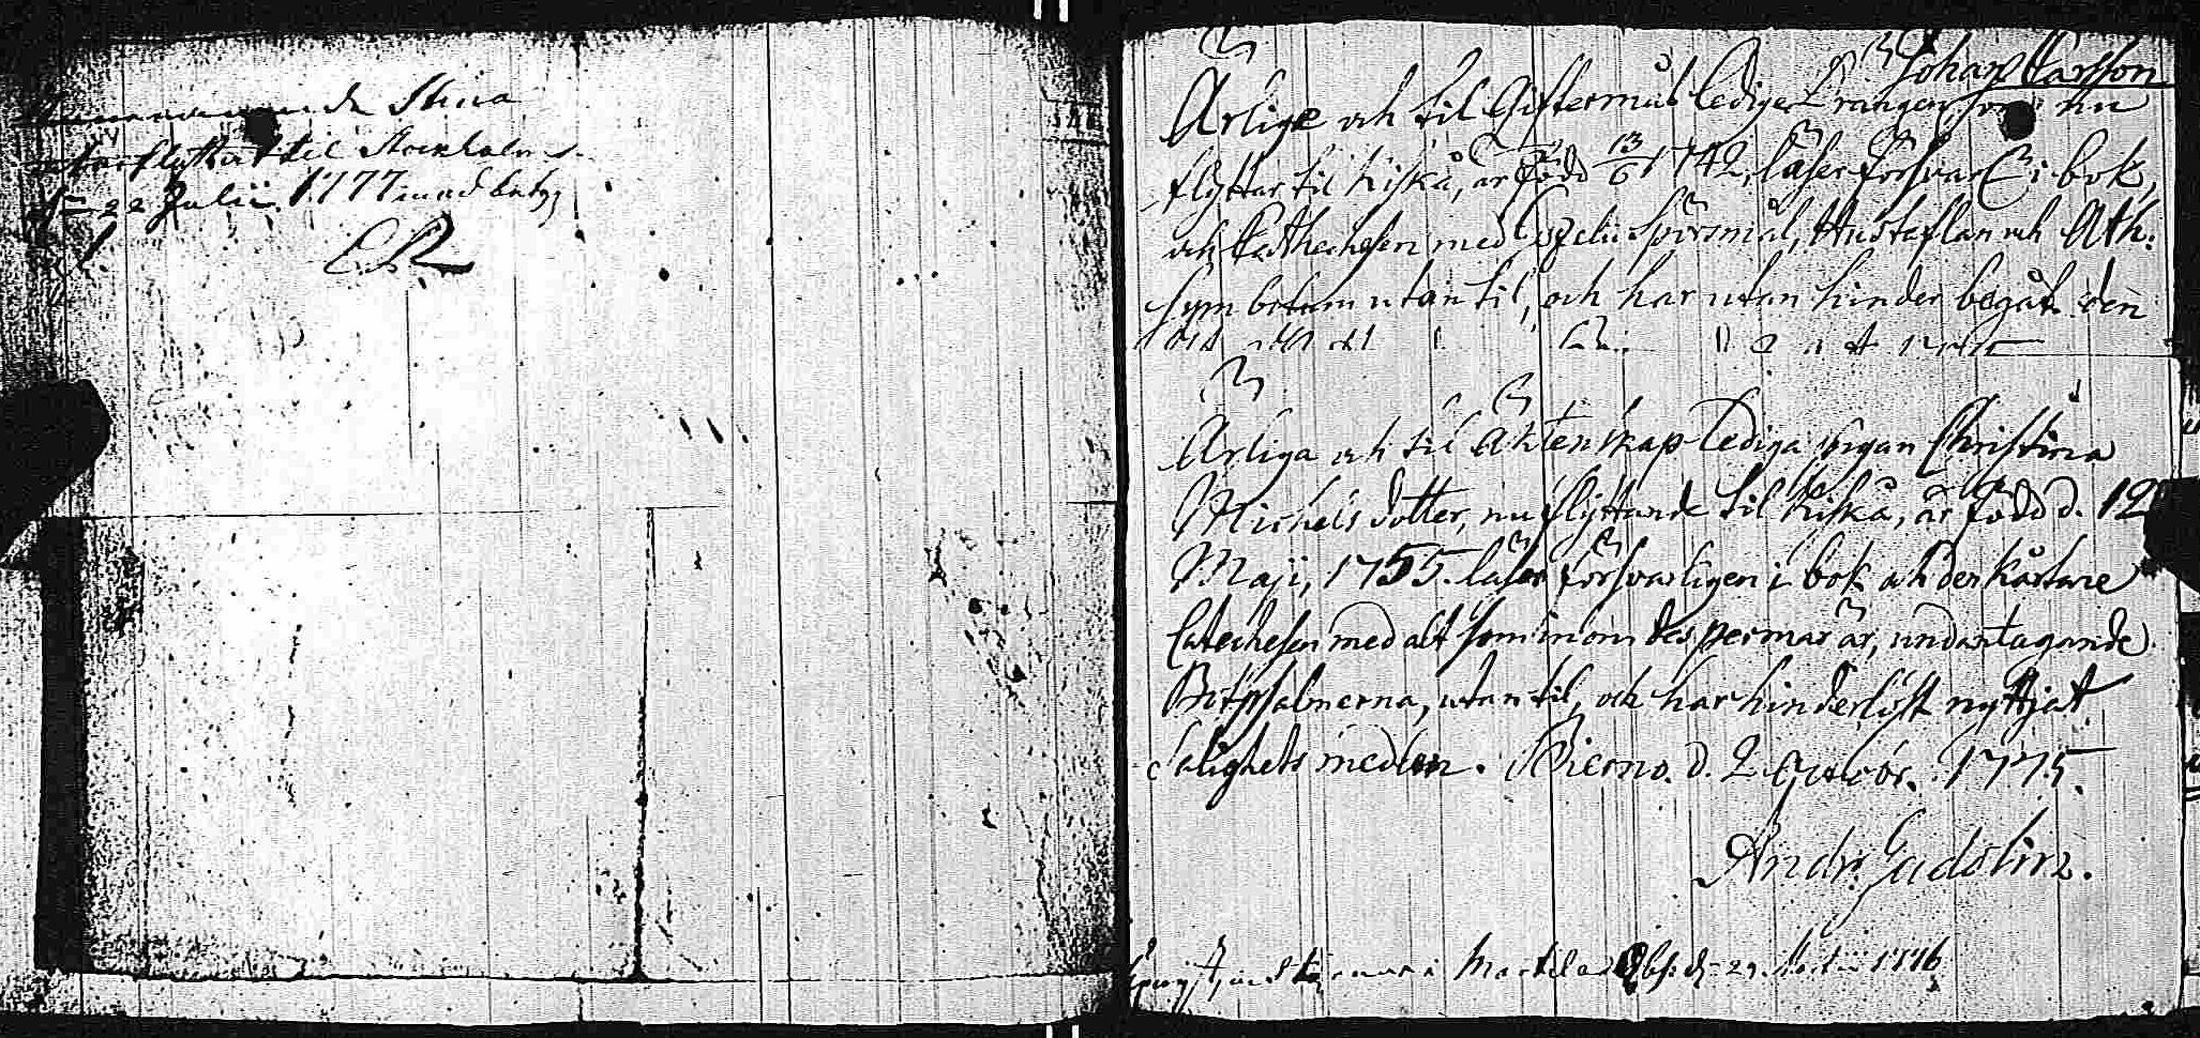 Stina
har flyttat til Stockholm
22 Julii 1777 med betyg
Johan Carsson
Ärlige och til Giftermål ledige Drängen, som nu
flyttar til Kiskå, är född 13/6 1742, läser försvarl i bok,
och Cathechesen med Spörsmål, Hustaflan och Ath:
Symbolum utan til, och har utan hinder begåt den
Ärliga och til Äktenskap lediga Pigan Christina
Michels dotter, nu flyttande til Kiskå, är född d. 12
Maji, 1755. läser försvarligen i bok och den kårtare
Catechesen med alt som inom des permar är, undantagande
Botpsalmerna, utan til, och har hinderlöst nyttjat
Salighets medlen. Bierno. d. 2 Octobr. 1775.
Andr. Gadolin.
Martii 1776